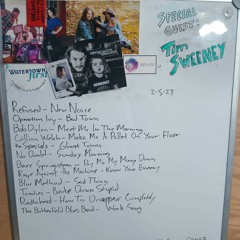 SPECIAL
GUEST:
Tim
SWEENEY
WATERTOWN
first
2-5-23
Refused - New Noise
Operation Ivy - Bad Town
Bob Dylan - Meet Me In The Morning
Gillian Welch - Make Me A Pallet On Your Floor
The Specials - Ghost Town
No Doubt - Sunday Morning
Bruce Springsteen - Pay Me My Money Down
Rage Against the Machine - Know Your Enemy
Blue Method - Sad Thing
Tsunami - Broke Down Stupid
Radiohead - How To Disappear Completely
The Butterfield Blues Band - Work Song